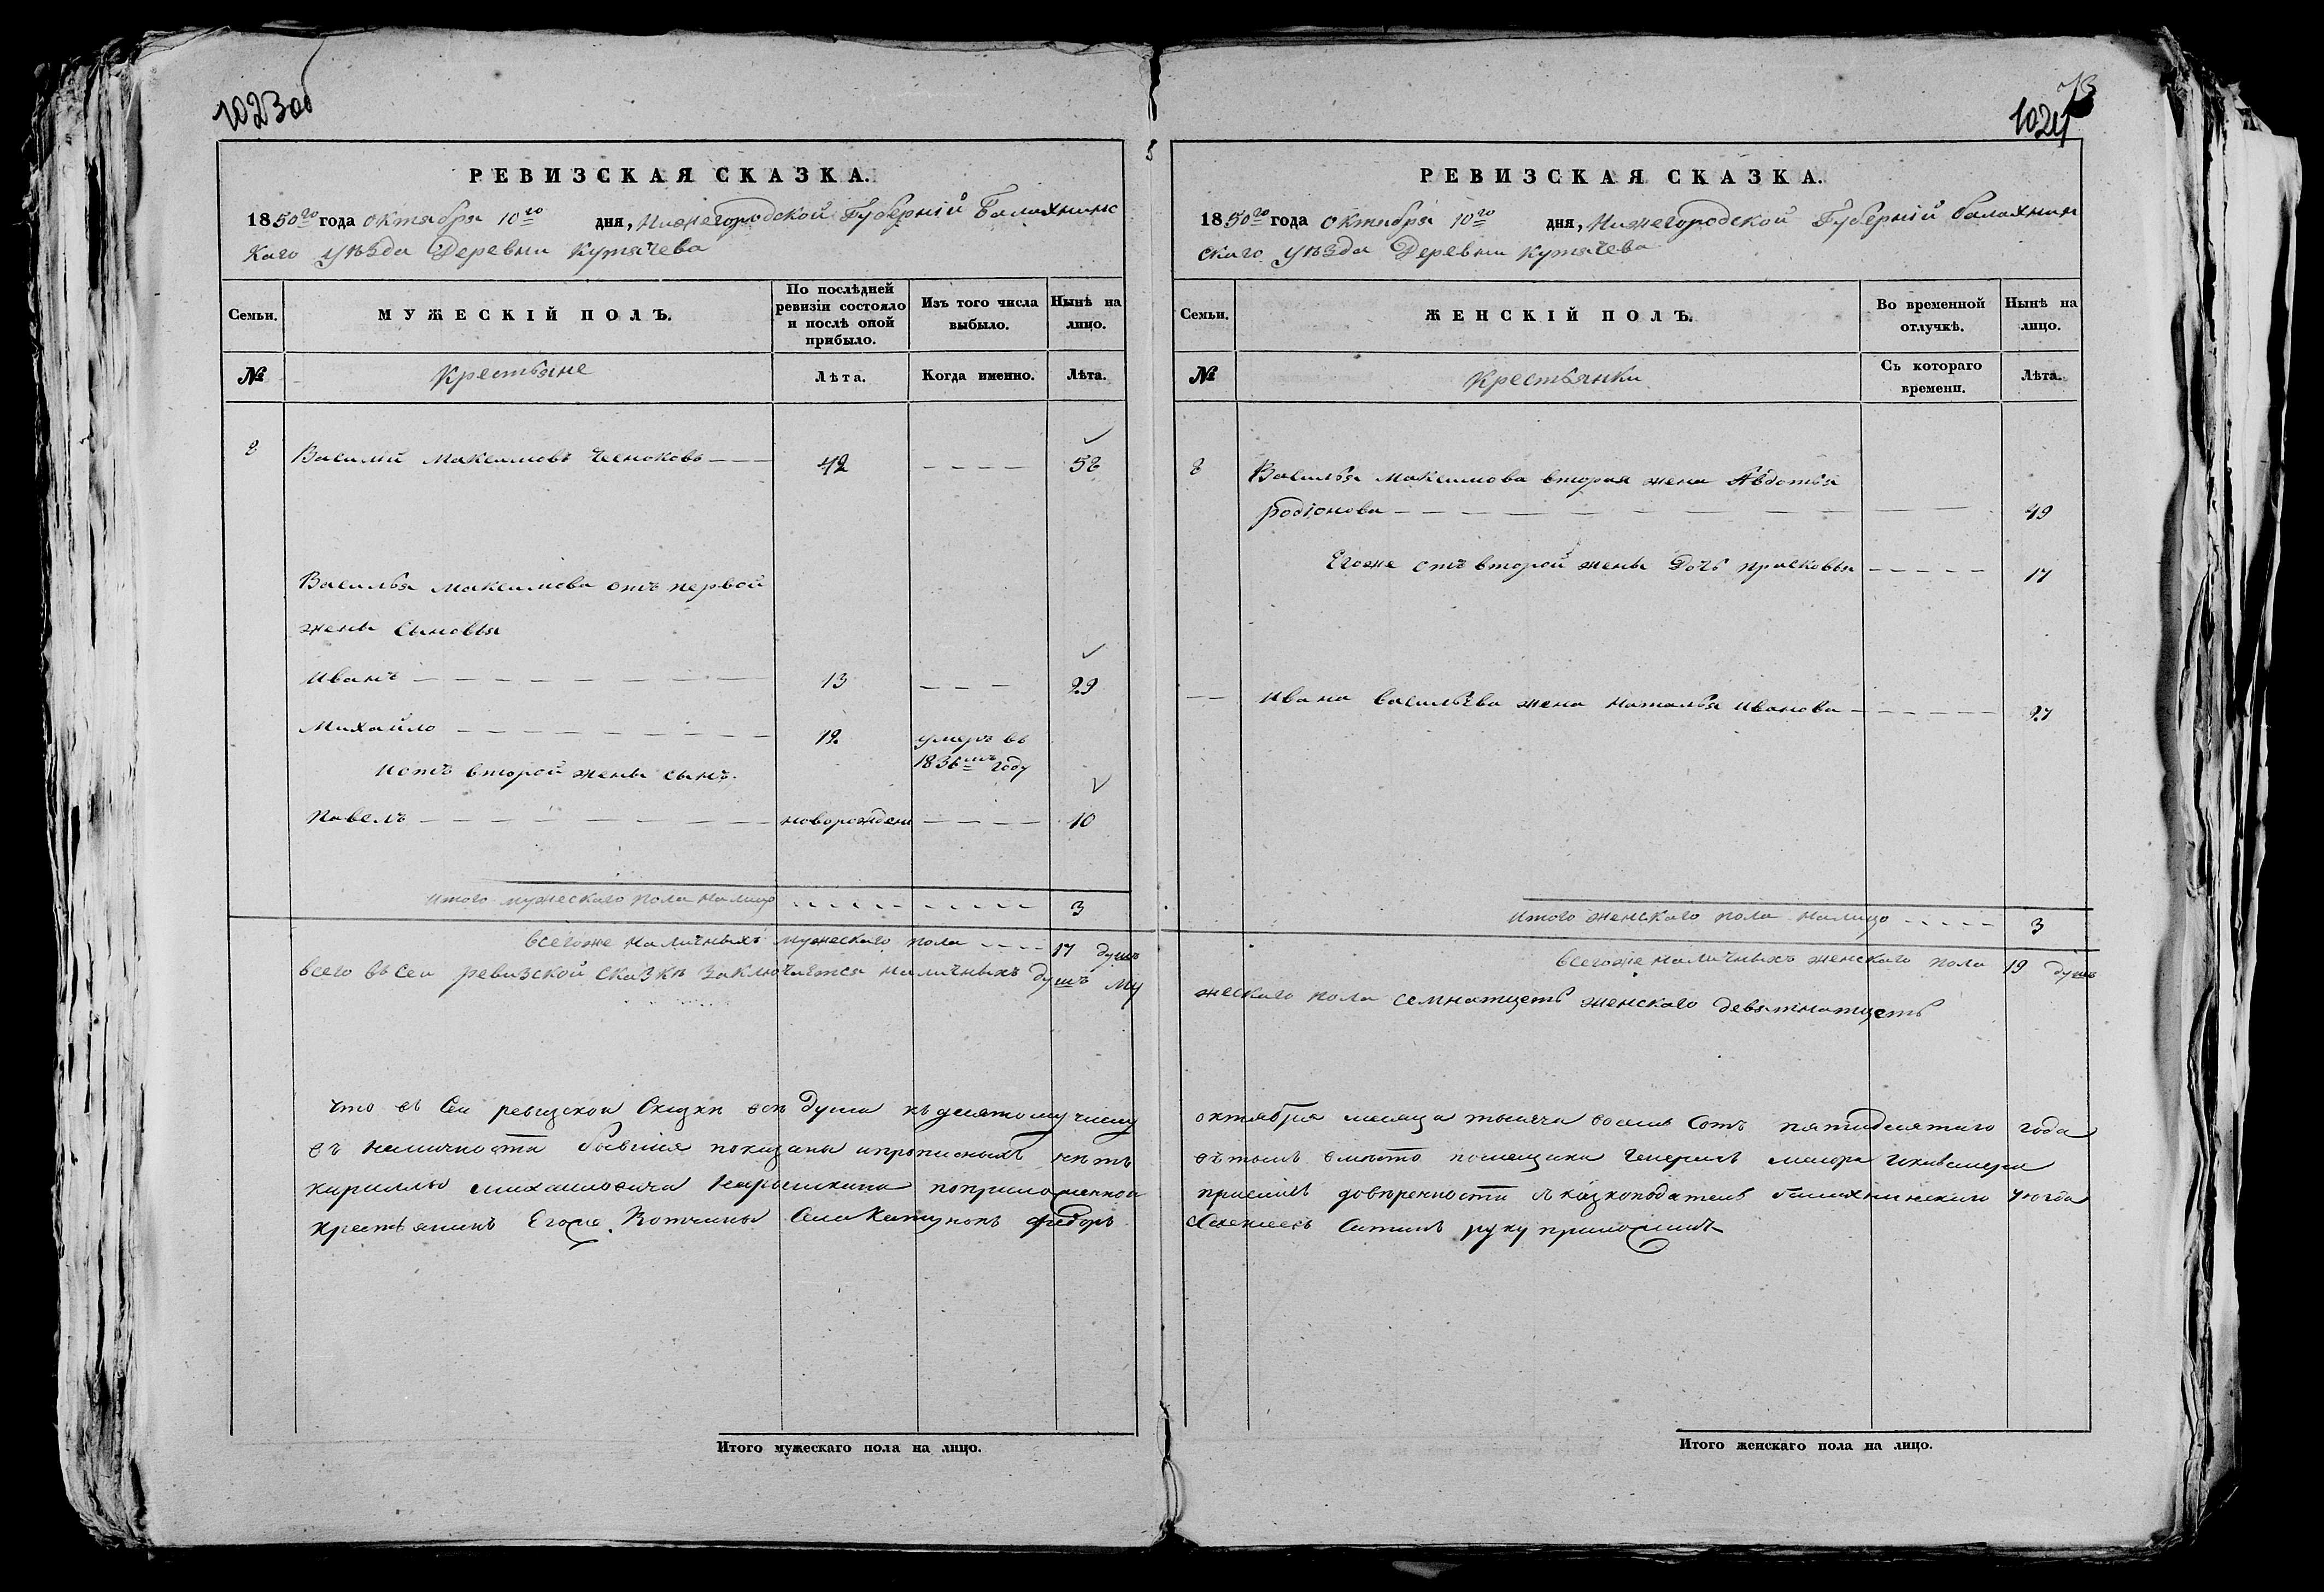 1023об
РЕВИЗСКАЯ СКАЗКА.
1850го года октября 10го дня, Нижегородской Губерній Балахнинс
каго уѣзда Деревни Кутячева
Семьи.
МУЖЕСКІЙ ПОЛЪ.
По послѣдней
ревизіи состояло
и послѣ оной
прибыло.
Изъ того числа
выбыло.
Нынѣ на
лицо.
№
Крестьяне
Лѣта.
Когда именно.
Лѣта.
8 Василій Максимовъ Чесноковъ 42 58
Василья Максимова отъ первой
жены Сыновья
Иванъ 13 29
Михайло 12 умеръ въ
1836мъ году
И отъ второй жены сынъ
Павелъ новорожден 10
Итого мужескаго пола налицо 3
всегоже наличныхъ мужескаго пола 17 душъ
всего въ сей ревизской сказкѣ заключается наличныхъ душъ му
что въ Сей ревизской Сказки всѣ души къ десятому числу
въ наличности бывшия показаны ипрописныхъ нѣтъ
Кирилы Михайловича Нарышкина
крестьянинъ Егоже Вотчины Села Катунокъ Федоръ
Итого мужескаго пола на лицо.
73
1024
РЕВИЗСКАЯ СКАЗКА.
1850го года октября 10го дня, Нижегородской Губерній балахнин
скаго уѣзда Деревни Кутячева
Семьи.
ЖЕНСКІЙ ПОЛЪ.
Во временной
отлучкѣ.
Нынѣ на
лицо.
№
Крестьянки
Съ котораго
времени.
Лѣта.
8 Василья Максимова вторая жена Авдотья
Родіонова 49
Егоже отъ второй жены Дочь Прасковья 17
Ивана Васильева жена Наталья Иванова 27
Итого женскаго пола налицо 3
всегоже наличныхъ женскаго пола 19 душъ
жескаго пола семнатцеть женскаго девятнатцеть
октября месяца тысяча восемь Сотъ пятидесятаго года
вътомъ вместо помещика Генералъ маиора
довѣренности
руку приложилъ
Итого женскаго пола на лицо.